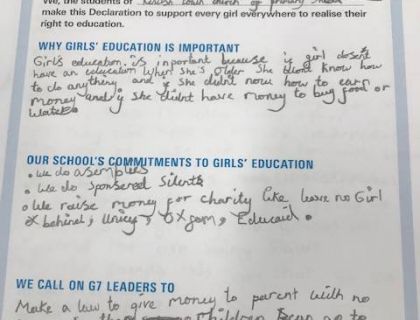 We, the students of
make this Declaration to support every girl everywhere to realise their
right to education.
WHY GIRLS' EDUCATION IS IMPORTANT
Girls education is inportant because if girl dosent
have an education when she's older she know how
to do anything and if she didnt now how to earn
money and if she didnt have money to buy food or
water
OUR SCHOOL'S COMMITMENTS TO GIRLS' EDUCATION
• We do asemblies
• We do Sponsered Silents
• We raise money for charity like leave no Girl
behind, Unicef, Oxfam, Educaid.
WE CALL ON G7 LEADERS TO
Make a law to give money to parent with no
children to